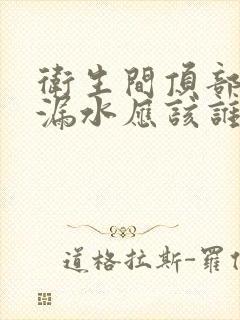 衛生間頂部
漏水應該誰
道格拉斯-羅